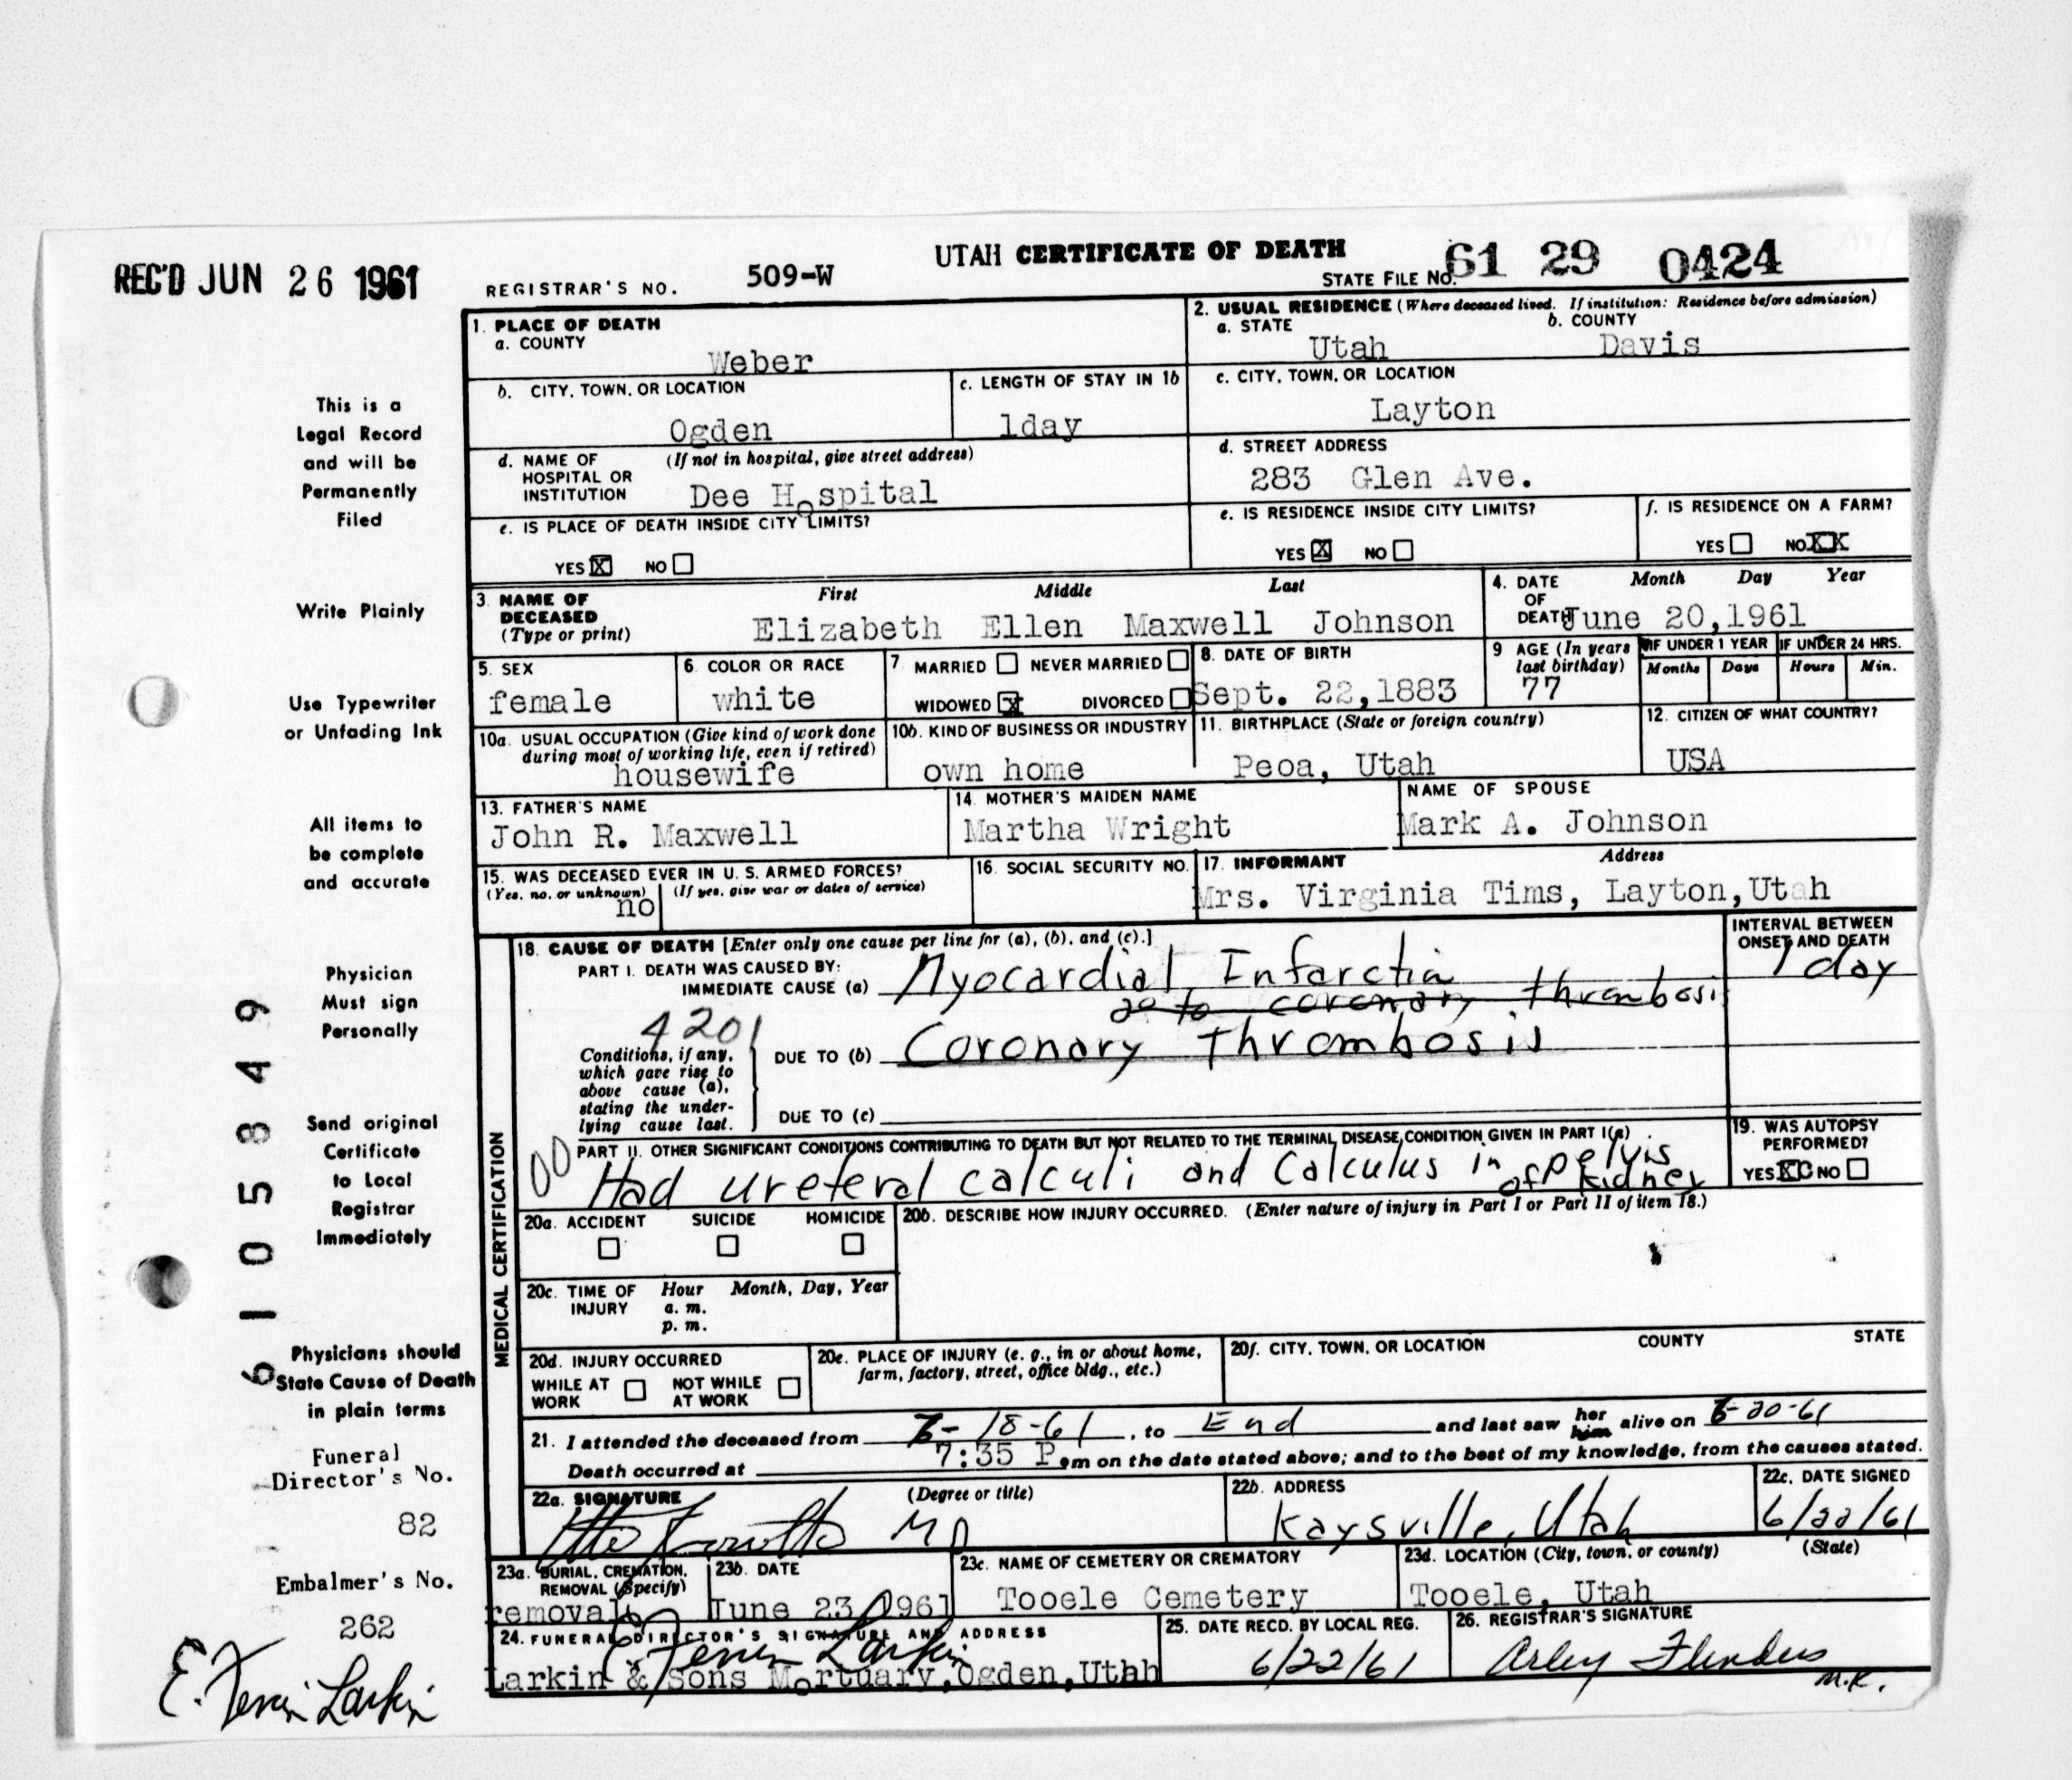 UTAH CERTIFICATE OF DEATH
REC'D JUN 26 1961
REGISTRAR'S NO. 509-W
STATE FILE NO. 61 29 0424
This is a
Legal Record
and will be
Permanently
Filed
Write Plainly
Use Typewriter
or Unfading Ink
All items to
be complete
and accurate
Physician
Must sign
Personally
Send original
Certificate
to Local
Registrar
Immediately
Physicians should
State Cause of Death
in plain terms
Funeral
Director's No.
82
Embalmer's No.
262
E. Larkin
6105849
1. PLACE OF DEATH
a. COUNTY
Weber
b. CITY, TOWN, OR LOCATION
Ogden
c. LENGTH OF STAY IN 1b
1day
d. NAME OF HOSPITAL OR INSTITUTION (If not in hospital, give street address)
Dee Hospital
e. IS PLACE OF DEATH INSIDE CITY LIMITS?
YES X NO
2. USUAL RESIDENCE (Where deceased lived. If institution: Residence before admission)
a. STATE
Utah
b. COUNTY
Davis
c. CITY, TOWN, OR LOCATION
Layton
d. STREET ADDRESS
283 Glen Ave.
e. IS RESIDENCE INSIDE CITY LIMITS?
YES X NO
f. IS RESIDENCE ON A FARM?
YES NO XX
3. NAME OF DECEASED (Type or print)
First Middle Last
Elizabeth Ellen Maxwell Johnson
4. DATE OF DEATH
Month Day Year
June 20,1961
5. SEX
female
6. COLOR OR RACE
white
7. MARRIED NEVER MARRIED
WIDOWED X DIVORCED
8. DATE OF BIRTH
Sept. 22,1883
9 AGE (In years last birthday)
77
IF UNDER 1 YEAR
Months Days
IF UNDER 24 HRS.
Hours Min.
10a. USUAL OCCUPATION (Give kind of work done during most of working life, even if retired)
housewife
10b. KIND OF BUSINESS OR INDUSTRY
own home
11. BIRTHPLACE (State or foreign country)
Peoa, Utah
12. CITIZEN OF WHAT COUNTRY?
USA
13. FATHER'S NAME
John R. Maxwell
14. MOTHER'S MAIDEN NAME
Martha Wright
NAME OF SPOUSE
Mark A. Johnson
15. WAS DECEASED EVER IN U. S. ARMED FORCES?
(Yes, no, or unknown) (If yes, give war or dates of service)
no
16. SOCIAL SECURITY NO.
17. INFORMANT Address
Mrs. Virginia Tims, Layton,Utah
MEDICAL CERTIFICATION
18. CAUSE OF DEATH [Enter only one cause per line for (a), (b), and (c).]
PART I. DEATH WAS CAUSED BY:
IMMEDIATE CAUSE (a) Myocardial Infarctia
to coronary thrombosis
INTERVAL BETWEEN ONSET AND DEATH
1 day
4201
Conditions, if any, which gave rise to above cause (a), stating the underlying cause last.
DUE TO (b) Coronary Thrombosis
DUE TO (c)
00
PART II. OTHER SIGNIFICANT CONDITIONS CONTRIBUTING TO DEATH BUT NOT RELATED TO THE TERMINAL DISEASE CONDITION GIVEN IN PART I(a)
Had ureteral calculi and Calculus in pelvis
of kidney
19. WAS AUTOPSY PERFORMED?
YES X NO
20a. ACCIDENT SUICIDE HOMICIDE
20b. DESCRIBE HOW INJURY OCCURRED. (Enter nature of injury in Part I or Part II of item 18.)
20c. TIME OF INJURY
Hour Month, Day, Year
a. m.
p. m.
20d. INJURY OCCURRED
WHILE AT WORK NOT WHILE AT WORK
20e. PLACE OF INJURY (e. g., in or about home, farm, factory, street, office bldg., etc.)
20f. CITY, TOWN, OR LOCATION COUNTY STATE
21. I attended the deceased from 6-18-61, to End and last saw her him alive on 6-20-61
Death occurred at 7:35 P. m on the date stated above; and to the best of my knowledge, from the causes stated.
22a. SIGNATURE (Degree or title)
MD
22b. ADDRESS
Kaysville, Utah
22c. DATE SIGNED
6/22/61
23a. BURIAL, CREMATION, REMOVAL (Specify)
removal
23b. DATE
June 23,1961
23c. NAME OF CEMETERY OR CREMATORY
Tooele Cemetery
23d. LOCATION (City, town, or county) (State)
Tooele, Utah
24. FUNERAL DIRECTOR'S SIGNATURE AND ADDRESS
Larkin
Larkin & Sons Mortuary,Ogden,Utah
25. DATE RECD. BY LOCAL REG.
6/22/61
26. REGISTRAR'S SIGNATURE
Arley Flinders
M.K.